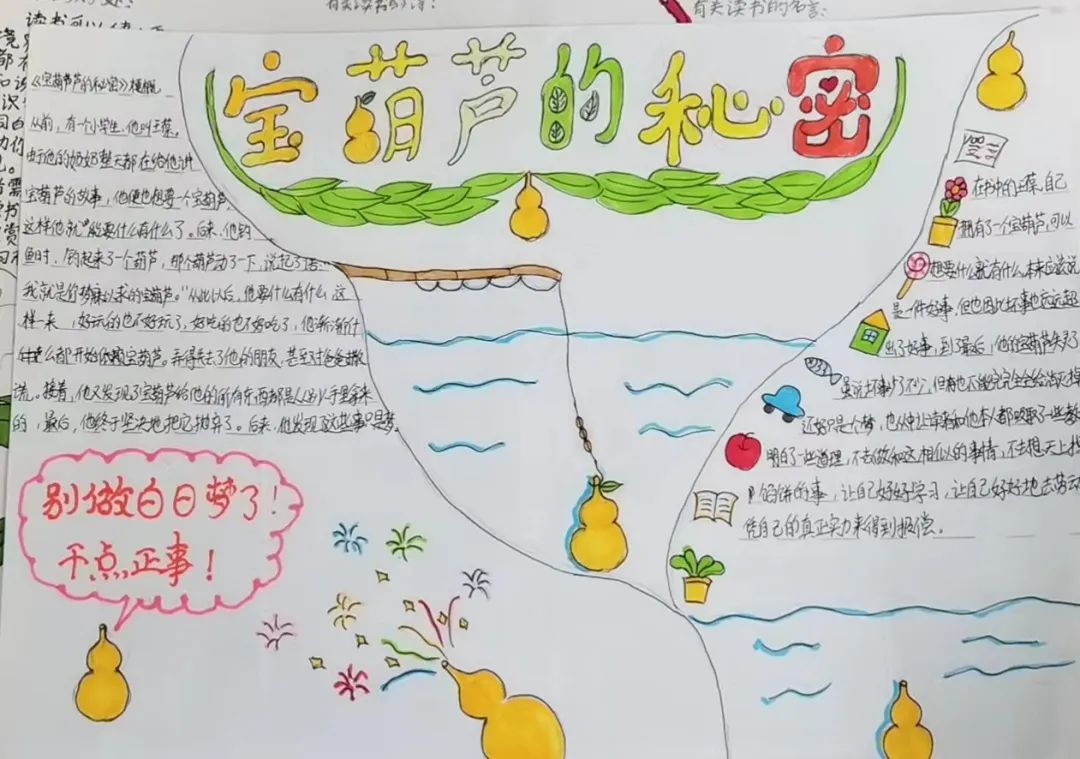 有关读书的名言:
宝葫芦的秘密
《宝葫芦的秘密》梗概
从前,有一个小学生,他叫王葆。
由于他的奶奶整天都在给他讲
宝葫芦的故事,他便也想要一个宝葫芦,
这样他就“能要什么有什么了。后来,他钓
鱼时,钓起来了一个葫芦,那个葫芦动了一下,说起了话
我就是你梦寐以求的宝葫芦。”从此以后,他要什么有什么,这
样一来,好玩的也不好玩了,好吃的也不好吃了,他渐渐什
么都开始依赖宝葫芦。弄得失去了他的朋友,甚至对爸爸撒
谎。接着,他又发现了宝葫芦给他的所有东西都是从别人手里拿来
的,最后,他终于坚决地把它抛弃了。后来,他发现这些事只是梦。
别做白日梦了!
干点正事!
在书中的王葆,自己
拥有了一个宝葫芦,可以
想要什么就有什么,本来应该说
是一件好事,但也因此坏事也远远超
出了好事,到了最后,他的宝葫芦失
虽说坏事少了不少,但有也不能完完全全给
还好只是个梦,也从中让
明白了一些道理,不去做和这相似的事情,不去想天上
馅饼的事,让自己好好学习,让自己好好地去劳动
凭自己的真正实力来得到报偿。